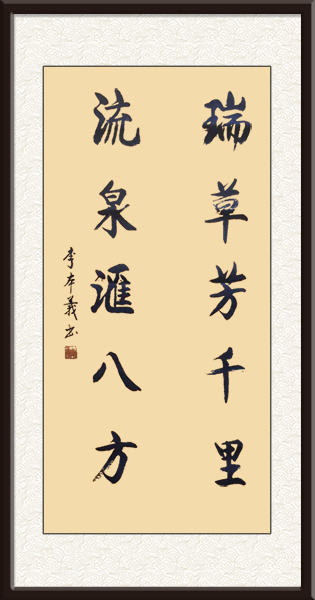 瑞草芳千里
流泉滙八方
李本義书